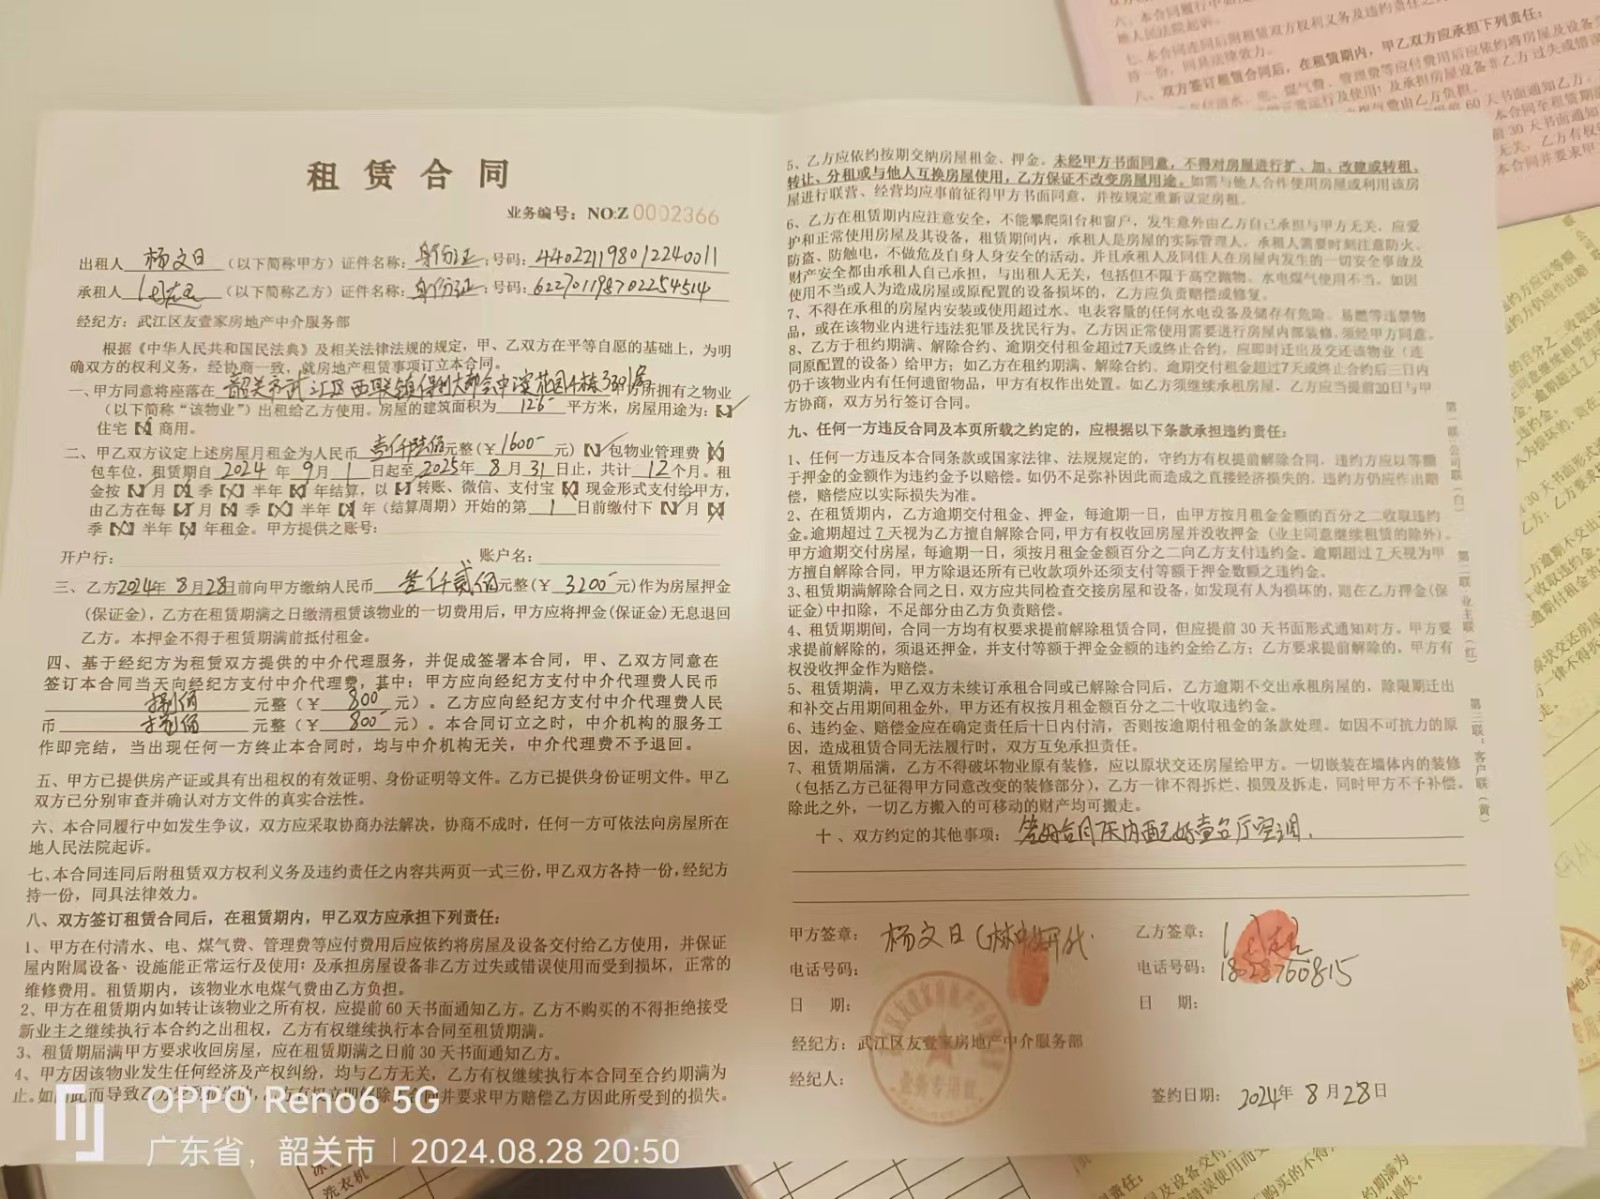 租赁合同
业务编号：NO:Z 0002366
出租人 杨文日 （以下简称甲方）证件名称：身份证 号码：440221198012240011
承租人 （以下简称乙方）证件名称：身份证 号码：622701198702254514
经纪方：武江区友壹家房地产中介服务部
根据《中华人民共和国民法典》及相关法律法规的规定，甲、乙双方在平等自愿的基础上，为明
确双方的权利义务，经协商一致，就房地产租赁事项订立本合同。
一、甲方同意将座落在 韶关市武江区西联镇保利大都会中滨花园4栋3301房 甲方所拥有之物业
（以下简称“该物业”）出租给乙方使用。房屋的建筑面积为 126 平方米，房屋用途为：【✓】
住宅【×】商用。
二、甲乙双方议定上述房屋月租金为人民币 壹仟陆佰 元整（¥ 1600 元）【✓】包物业管理费【×】
包车位，租赁期自 2024 年 9 月 1 日起至 2025 年 8 月 31 日止，共计 12 个月。租
金按【✓】月【×】季【×】半年【×】年结算，以【✓】转账、微信、支付宝【×】现金形式支付给甲方，
由乙方在每【✓】月【×】季【×】半年【×】年（结算周期）开始的第 1 日前缴付下【✓】月【×】
季【×】半年【×】年租金。甲方提供之账号：
开户行： 账户名：
三、乙方2024年 8月28日前向甲方缴纳人民币 叁仟贰佰元整（¥ 3200 元）作为房屋押金
（保证金），乙方在租赁期满之日缴清租赁该物业的一切费用后，甲方应将押金（保证金）无息退回
乙方。本押金不得于租赁期满前抵付租金。
四、基于经纪方为租赁双方提供的中介代理服务，并促成签署本合同，甲、乙双方同意在
签订本合同当天向经纪方支付中介代理费，其中：甲方应向经纪方支付中介代理费人民币
捌佰 元整（¥ 800 元）。乙方应向经纪方支付中介代理费人民
币 捌佰 元整（¥ 800 元）。本合同订立之时，中介机构的服务工
作即完结，当出现任何一方终止本合同时，均与中介机构无关，中介代理费不予退回。
五、甲方已提供房产证或具有出租权的有效证明、身份证明等文件。乙方已提供身份证明文件。甲乙
双方已分别审查并确认对方文件的真实合法性。
六、本合同履行中如发生争议，双方应采取协商办法解决，协商不成时，任何一方可依法向房屋所在
地人民法院起诉。
七、本合同连同后附租赁双方权利义务及违约责任之内容共两页一式三份，甲乙双方各持一份，经纪方
持一份，同具法律效力。
八、双方签订租赁合同后，在租赁期内，甲乙双方应承担下列责任：
1、甲方在付清水、电、煤气费、管理费等应付费用后应依约将房屋及设备交付给乙方使用，并保证
屋内附属设备、设施能正常运行及使用；及承担房屋设备非乙方过失或错误使用而受到损坏，正常的
维修费用。租赁期内，该物业水电煤气费由乙方负担。
2、甲方在租赁期内如转让该物业之所有权，应提前60天书面通知乙方。乙方不购买的不得拒绝接受
新业主之继续执行本合约之出租权，乙方有权继续执行本合同至租赁期满。
3、租赁期届满甲方要求收回房屋，应在租赁期满之日前30天书面通知乙方。
4、甲方因该物业发生任何经济及产权纠纷，均与乙方无关，乙方有权继续执行本合同至合约期满为
止。如因此而导致乙方 有权立即解除 合同并要求甲方赔偿乙方因此所受到的损失。
5、乙方应依约按期交纳房屋租金、押金。未经甲方书面同意，不得对房屋进行扩、加、改建或转租、
转让、分租或与他人互换房屋使用，乙方保证不改变房屋用途。如需与他人合作使用房屋或利用该房
屋进行联营、经营均应事前征得甲方书面同意，并按规定重新议定房租。
6、乙方在租赁期内应注意安全，不能攀爬阳台和窗户，发生意外由乙方自己承担与甲方无关，应爱
护和正常使用房屋及其设备，租赁期间内，承租人是房屋的实际管理人。承租人需要时刻注意防火、
防盗、防触电，不做危及自身人身安全的活动。并且承租人及同住人在房屋内发生的一切安全事故及
财产安全都由承租人自己承担，与出租人无关，包括但不限于高空抛物、水电煤气使用不当。如因
使用不当或人为造成房屋或原配置的设备损坏的，乙方应负责赔偿或修复。
7、不得在承租的房屋内安装或使用超过水、电表容量的任何水电设备及储存有危险、易燃等违禁物
品，或在该物业内进行违法犯罪及扰民行为。乙方因正常使用需要进行房屋内部装修，须经甲方同意。
8、乙方于租约期满、解除合约、逾期交付租金超过7天或终止合约，应即时迁出及交还该物业（连
同原配置的设备）给甲方；如乙方在租约期满、解除合约、逾期交付租金超过7天或终止合约后三日内
仍于该物业内有任何遗留物品，甲方有权作出处置。如乙方须继续承租房屋，乙方应当提前30日与甲
方协商，双方另行签订合同。
九、任何一方违反合同及本页所载之约定的，应根据以下条款承担违约责任：
1、任何一方违反本合同条款或国家法律、法规规定的，守约方有权提前解除合同，违约方应以等额
于押金的金额作为违约金予以赔偿。如仍不足弥补因此而造成之直接经济损失的，违约方仍应作出赔
偿，赔偿应以实际损失为准。
2、在租赁期内，乙方逾期交付租金、押金，每逾期一日，由甲方按月租金金额的百分之二收取违约
金。逾期超过 7 天视为乙方擅自解除合同，甲方有权收回房屋并没收押金（业主同意继续租赁的除外）。
甲方逾期交付房屋，每逾期一日，须按月租金金额百分之二向乙方支付违约金。逾期超过 7 天视为甲
方擅自解除合同，甲方除退还所有已收款项外还须支付等额于押金数额之违约金。
3、租赁期满解除合同之日，双方应共同检查交接房屋和设备，如发现有人为损坏的，则在乙方押金（保
证金）中扣除，不足部分由乙方负责赔偿。
4、租赁期期间，合同一方均有权要求提前解除租赁合同，但应提前30天书面形式通知对方。甲方要
求提前解除的，须退还押金，并支付等额于押金金额的违约金给乙方；乙方要求提前解除的，甲方有
权没收押金作为赔偿。
5、租赁期满，甲乙双方未续订承租合同或已解除合同后，乙方逾期不交出承租房屋的，除限期迁出
和补交占用期间租金外，甲方还有权按月租金额百分之二十收取违约金。
6、违约金、赔偿金应在确定责任后十日内付清，否则按逾期付租金的条款处理。如因不可抗力的原
因，造成租赁合同无法履行时，双方互免承担责任。
7、租赁期届满，乙方不得破坏物业原有装修，应以原状交还房屋给甲方。一切嵌装在墙体内的装修
（包括乙方已征得甲方同意改变的装修部分），乙方一律不得拆烂、损毁及拆走，同时甲方不予补偿。
除此之外，一切乙方搬入的可移动的财产均可搬走。
十、双方约定的其他事项： 签好合同 天内配好壹台厅空调。
甲方签章： 杨文日 乙方签章：
电话号码： 电话号码：18028760815
日 期： 日 期：
经纪方：武江区友壹家房地产中介服务部
经纪人：
业务专用章
签约日期： 2024年 8 月 28 日
第一联：公司联（白）
第二联：业主联（红）
第三联：客户联（黄）
OPPO Reno6 5G
广东省，韶关市 | 2024.08.28 20:50
洗衣机